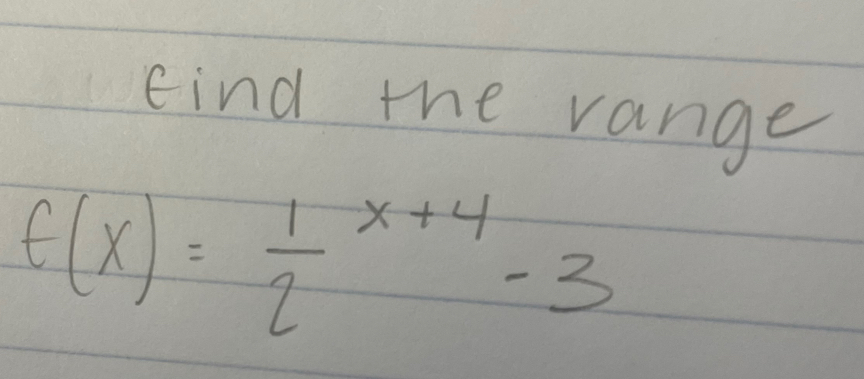 find the range
f(x) = 1/2 ^ x+4 - 3